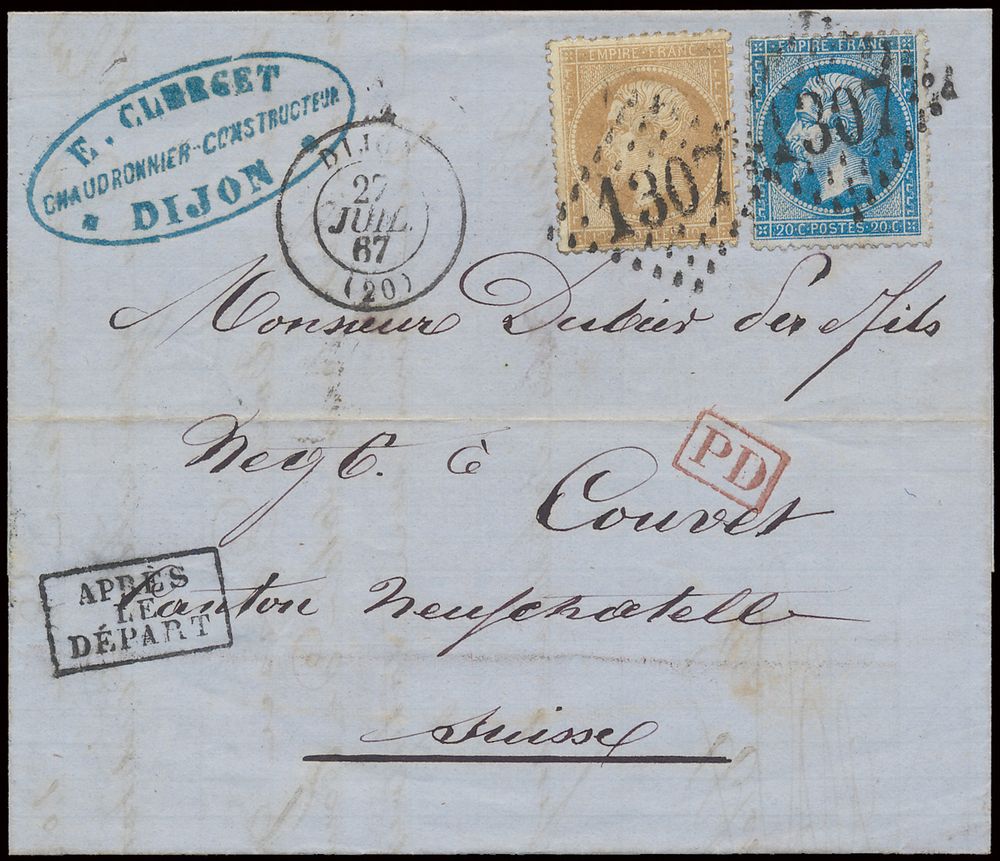 E. CLERGET
CHAUDRONNIER-CONSTRUCTEUR
DIJON
DIJON
27
JUIL.
67
(20)
EMPIRE FRANC
1307
EMPIRE FRANC
1307
20.C·POSTES·20.C
Monsieur Dubied Per Fils
Negt. è
PD
Couvet
APRÈS
LE
DÉPART
Canton Neufchatell
Suisse